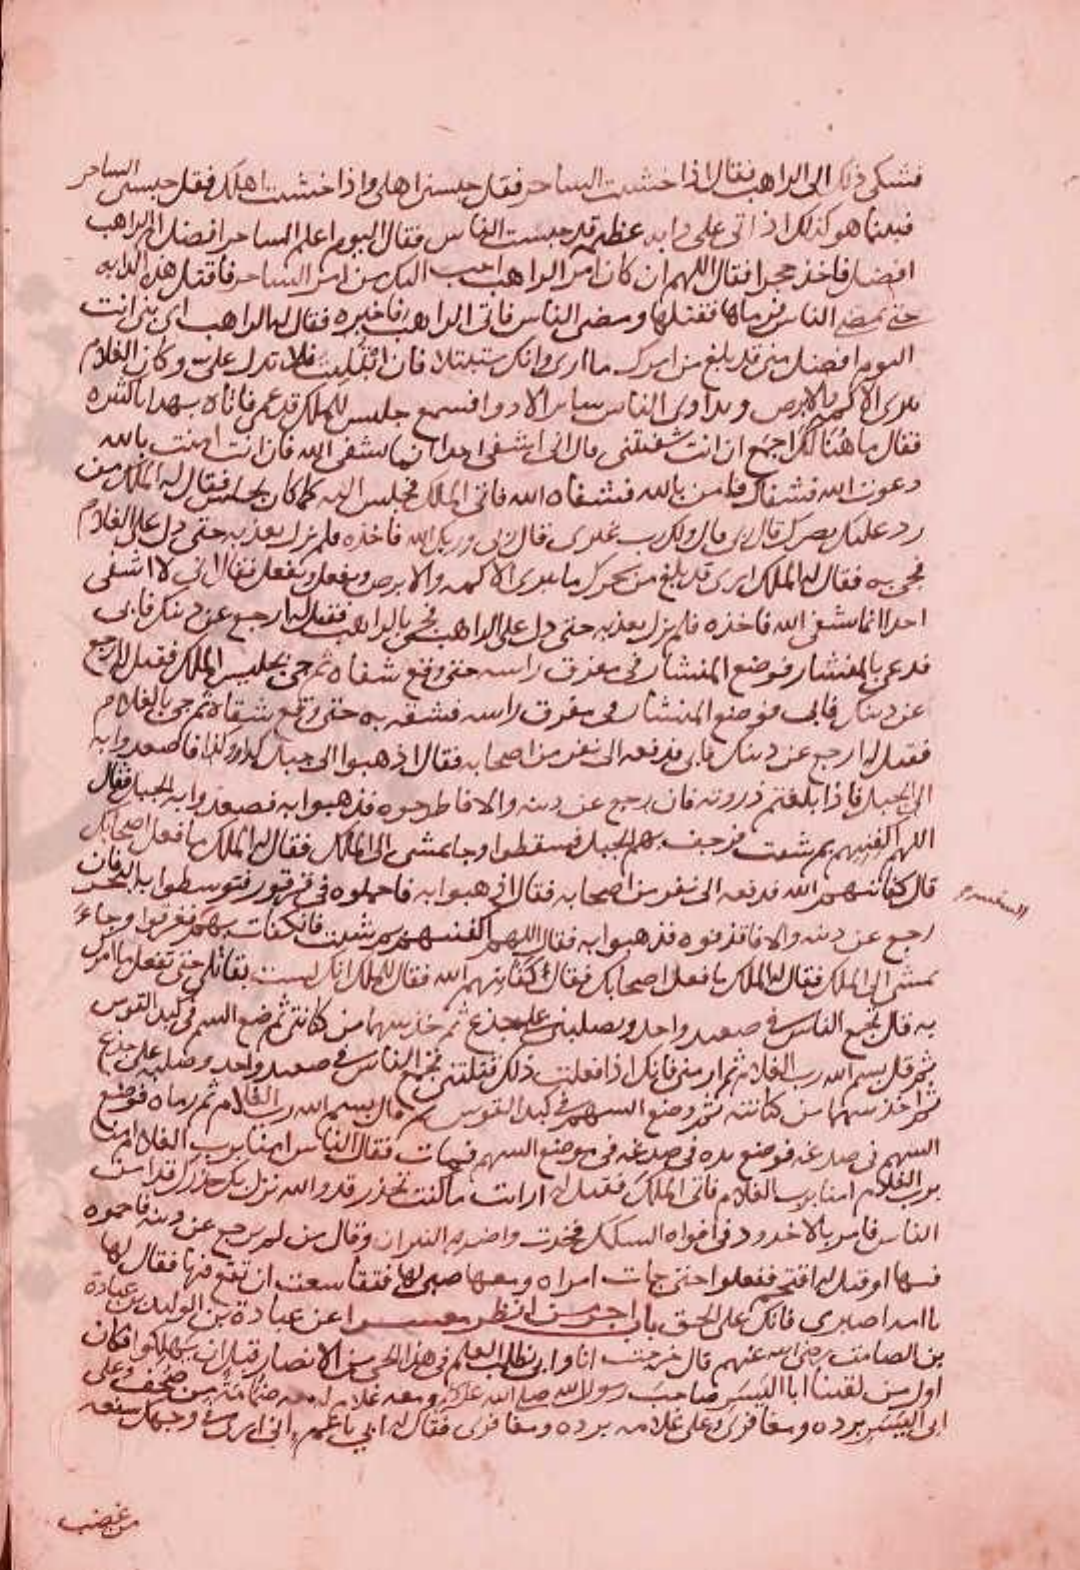 فشكى ذلك الى الراهب فقال اذا خشيت الساحر فقل حبسني اهلي واذا خشيت اهلك فقل حبسني الساحر
فبينما هو كذلك اذ اتى على دابه عظيمه قد حبست الناس فقال اليوم اعلم الساحر افضل ام الراهب
افضل فاخذ حجرا فقال اللهم ان كان امر الراهب احب اليك من امر الساحر فاقتل هذه الدابه
حتى يمضي الناس فرماها فقتلها ومضى الناس فاتى الراهب فاخبره فقال له الراهب اي بني انت
اليوم افضل مني قد بلغ من امرك ما ارى وانك ستبتلا فان ابتليت فلا تدل علي وكان الغلام
يبرى الاكمه والابرص ويداوى الناس سائر الادوا فسمع جليس للملك قد عمي فاتاه بهدايا كثيره
فقال ما هنا لك اجمع ان انت شفيتني قال اني لا شفي احدا انما يشفي الله فان انت امنت بالله
دعوت الله فشفاك فامن بالله فشفاه الله فاتى الملك فجلس اليه كما كان يجلس فقال له الملك من
رد عليك بصرك قال ربي قال ولك رب غيري قال ربي وربك الله فاخذه فلم يزل يعذبه حتى دل على الغلام
فجي به فقال له الملك اي بني قد بلغ من سحرك ما تبرى الاكمه والابرص وتفعل وتفعل فقال اني لا اشفي
احدا انما يشفي الله فاخذه فلم يزل يعذبه حتى دل على الراهب فجي بالراهب فقيل له ارجع عن دينك فابى
فدعى بالمنشار فوضع المنشار في مفرق راسه حتى وقع شقاه ثم جي بجليس الملك فقيل له ارجع
عن دينك فابى فوضع المنشار في مفرق راسه فشقه به حتى وقع شقاه ثم جي بالغلام
فقيل له ارجع عن دينك فابى فدفعه الى نفر من اصحابه فقال اذهبوا الى جبل كذا وكذا فاصعدوا به
الى الجبل فاذا بلغتم ذروته فان رجع عن دينه والا فاطرحوه فذهبوا به فصعدوا به الجبل فقال
اللهم اكفنيهم بم شئت فرجف بهم الجبل فسقطوا وجا يمشي الى الملك فقال له الملك ما فعل اصحابك
قال كفانيهم الله فدفعه الى نفر من اصحابه فقال اذهبوا به فاحملوه في قرقور فتوسطوا به البحر فان
رجع عن دينه والا فاقذفوه فذهبوا به فقال اللهم اكفنيهم بم شئت فانكفات بهم فغرقوا وجاء
يمشي الى الملك فقال له الملك ما فعل اصحابك فقال كفانيهم الله فقال للملك انك لست بقاتلي حتى تفعل ما امرك
به قال تجمع الناس في صعيد واحد وتصلبني على جذع ثم خذ سهما من كنانتي ثم ضع السهم في كبد القوس
ثم قل بسم الله رب الغلام ثم ارمني فانك اذا فعلت ذلك قتلتني فجمع الناس في صعيد واحد وصلبه على جذع
ثم اخذ سهما من كنانته ثم وضع السهم في كبد القوس ثم قال بسم الله رب الغلام ثم رماه فوقع
السهم في صدغه فوضع يده في صدغه في موضع السهم فمات فقال الناس امنا برب الغلام امنا
برب الغلام امنا برب الغلام فاتي الملك فقيل له ارايت ما كنت تحذر قد والله نزل بك حذرك قد امن
الناس فامر بالاخدود في افواه السكك فخدت واضرم النيران وقال من لم يرجع عن دينه فاحموه
فيها او قيل له اقتحم ففعلوا حتى جات امراه ومعها صبي لها فتقاعست ان تقع فيها فقال لها
يا امه اصبري فانك على الحق باب اجر من انظر معسرا عن عبادة بن الوليد بن عبادة
بن الصامت رضي الله عنهم قال خرجت انا وابي نطلب العلم في هذا الحي من الانصار قبل ان يهلكوا فكان
اول من لقينا ابا اليسر صاحب رسول الله صلى الله عليه ومعه غلام له معه ضمامة من صحف وعلى
ابي اليسر برده ومعافري وعلى غلامه برده ومعافري فقال له ابي يا عم اني ارى في وجهك سفعه
من غضب